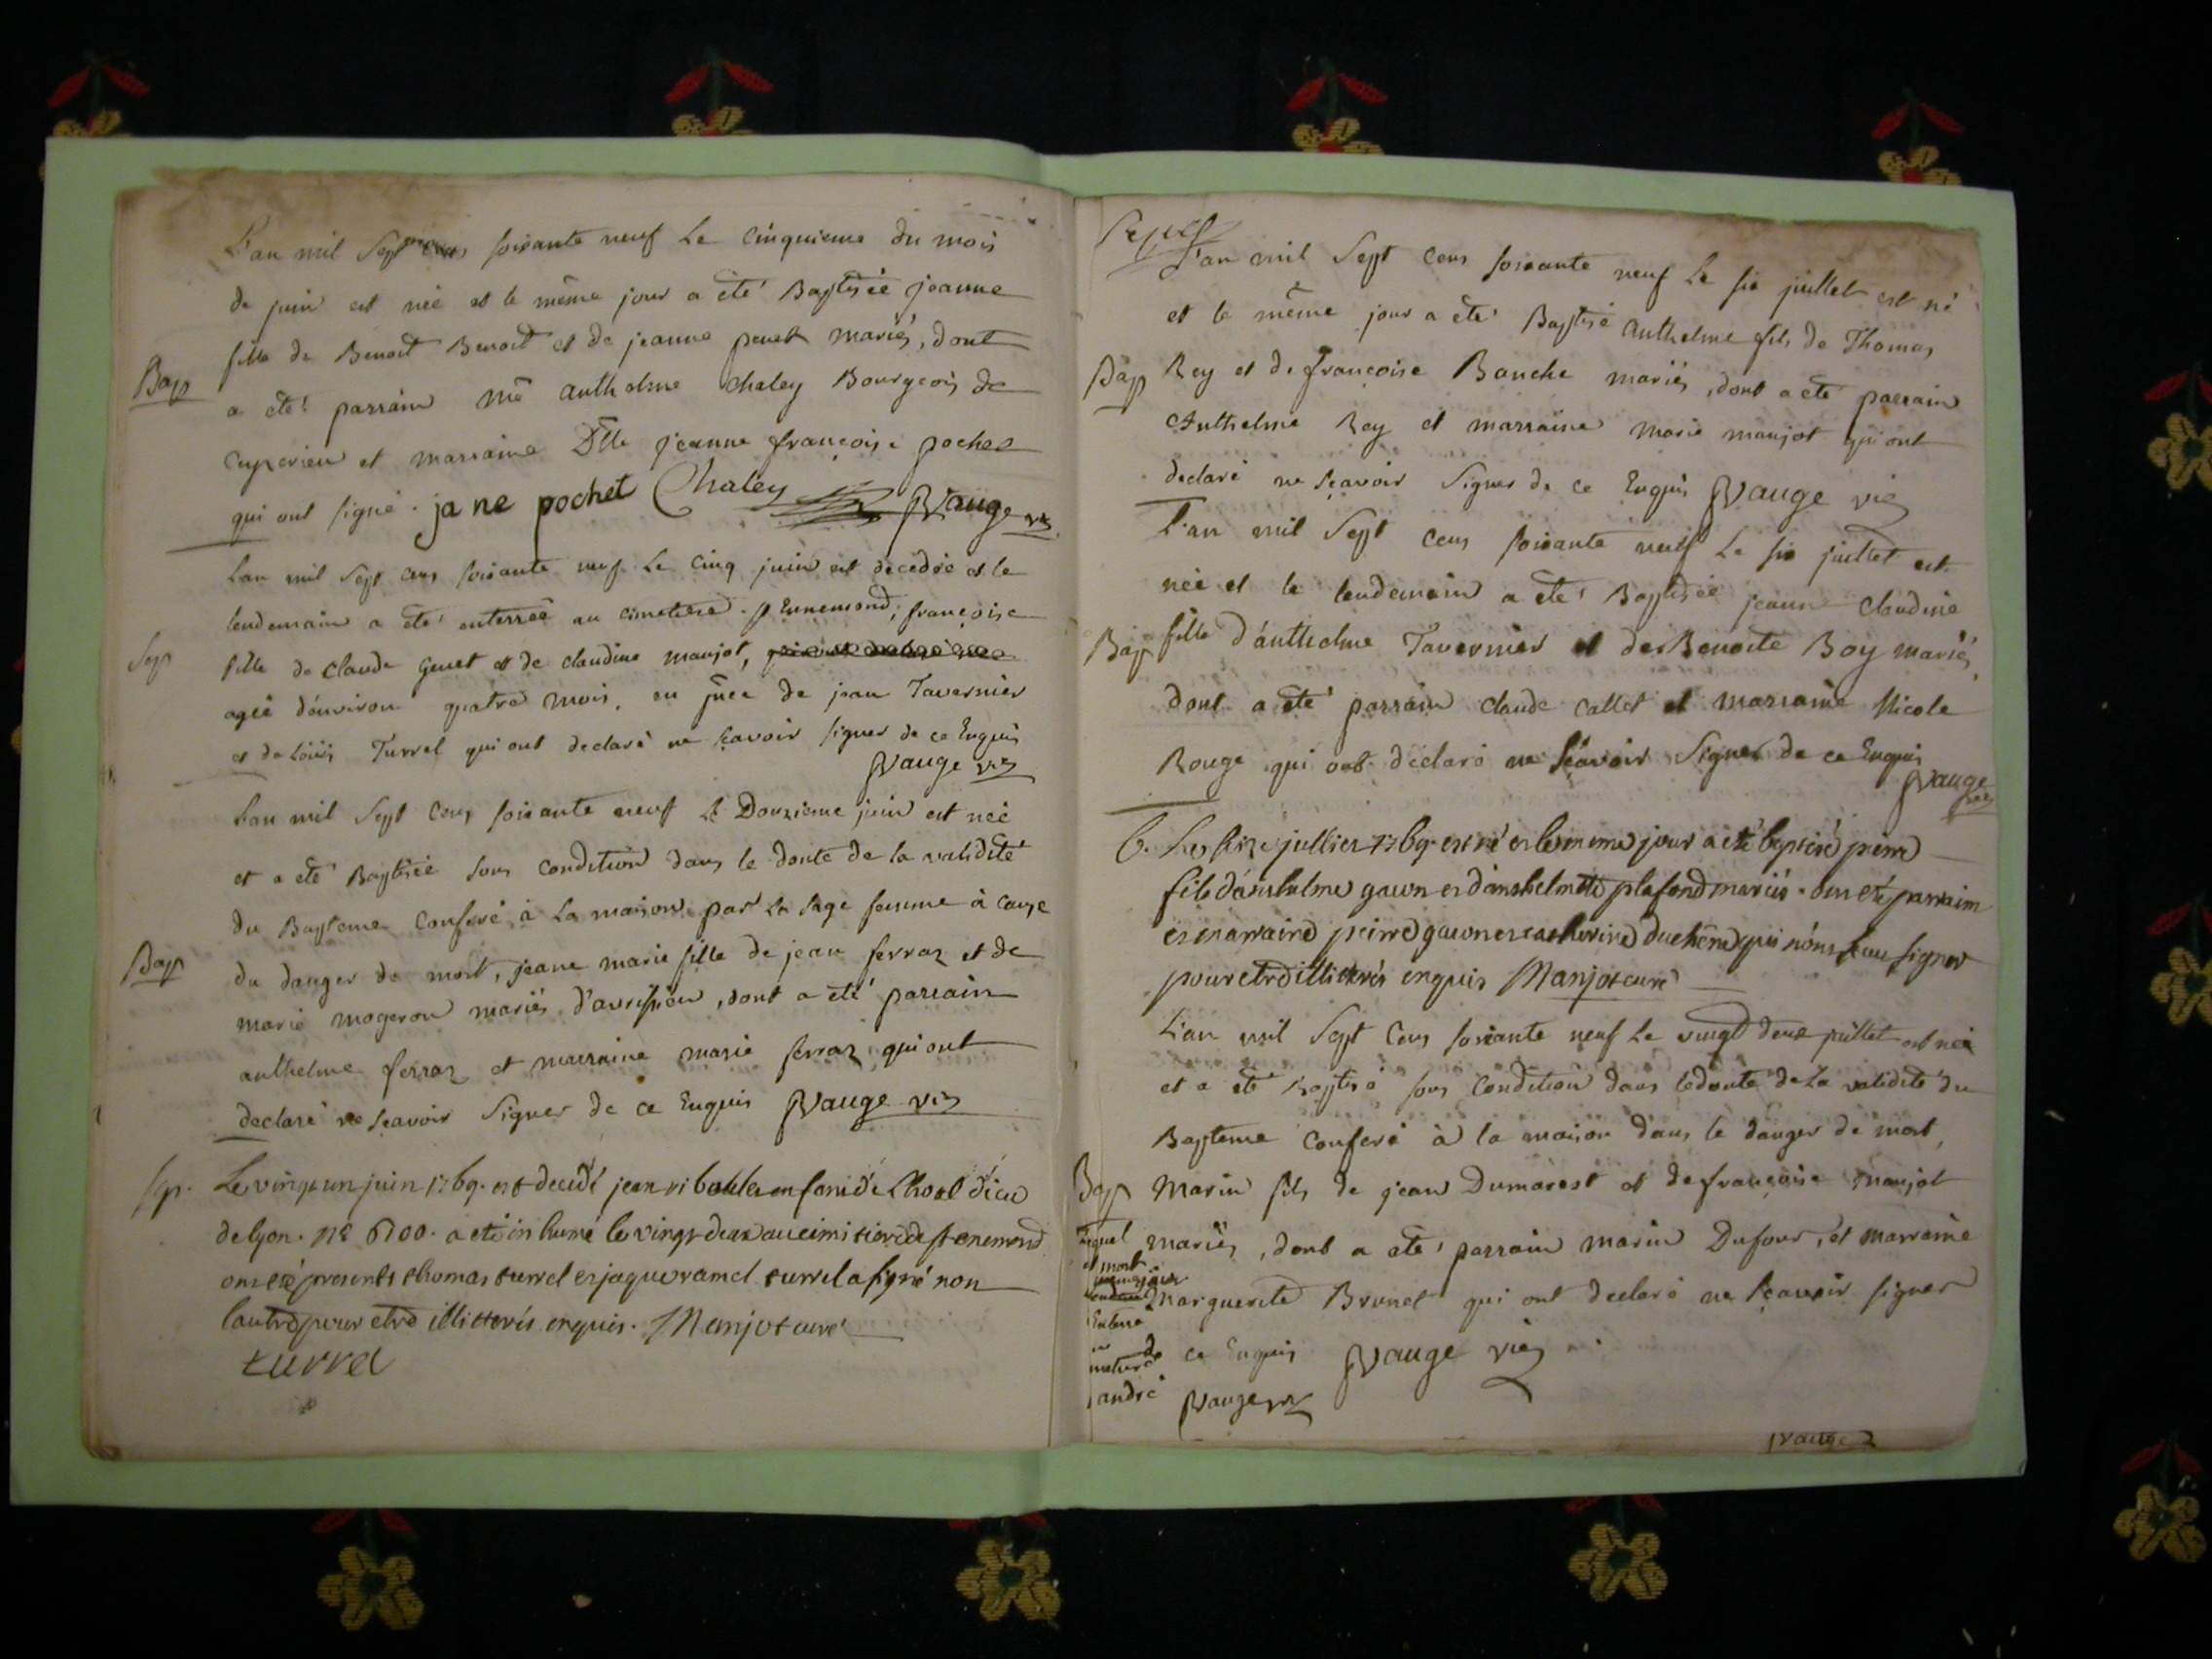 L'an mil Sept cens soixante neuf Le Cinquieme du mois
de juin est née et le même jour a été Baptisée jeanne
fille de Benoit Benoit et de jeanne penet mariés, dont
Bap
a été parrain me anthelme Chaley Bourgeois de
Ceyzerieu et marraine Dlle jeanne françoise pochet
qui ont signé. ja ne pochet Chaley Vauge vic
Lan mil Sept cens soixante neuf Le cinq juin est decedée et le
lendemain a été enterrée au cimetiere françoise
Sep fille de Claude genet et de claudine manjot,
agée d'environ quatre mois, en de jean Tavernier
et de Loüis Turrel qui ont declaré ne sçavoir signer de ce Enquis
Vauge vic
Lan mil Sept Cens soixante neuf Le Douzieme juin est née
et a été Baptisée sous condition dans le doute de la validité
du Bapteme Conferé à La maison par La sage femme à cause
Bap du danger de mort, jeane marie fille de jean ferraz et de
marie mogeron mariés, dont a été parrain
anthelme ferraz et marraine marie ferraz qui ont
declaré ne sçavoir Signer de ce Enquis Vauge vic
Sep. Le vingt un juin 1769. est decedé jean enfant de L'hotel dieu
de lyon. No a été inhumé le vingt deux au cimitiere de st enemond
ont été presents thomas turrel et jaque ramel turrel a signé non
l'autre pour etre illitterés enquis. Manjot curé
turrel
L'an mil Sept Cens soixante neuf Le six juillet est né
et le même jour a été Baptisé Anthelme fils de Thomas
Bap Rey et de françoise Banche mariés, dont a été parrain
Anthelme Rey et marraine marie manjot qui ont
declaré ne sçavoir Signer de ce Enquis Vauge vic
L'an mil Sept Cens soixante neuf Le six juillet est
née et le lendemain a été Baptisée jeanne claudine
Bap fille d'anthelme Tavernier et de Benoite Boy mariés,
dont a été parrain claude callet et marraine Nicole
Rouge qui ont déclaré ne sçavoir Signer de ce Enquis
Vauge vic
B. Le seize jullier 1769. est né et le meme jour a été baptisé pierre
fils d'anthelme et d'anthelmette plafond mariés. ont été parrain
et marraine pierre et catherine duchêne qui n'ont sceu signer
pour etre illitterés enquis Manjot curé
L'an mil Sept Cens soixante neuf Le vingt deux juillet est né
et a été Baptisé sous condition dans le doute de La validité du
Bapteme Conferé à la maison dans le danger de mort,
Bap Marin fils de jean Dumarest et de françoise manjot
mariés, dont a été parrain marin Dufour, et marraine
Marguerite Brunet qui ont declaré ne sçavoir signer
de ce Enquis Vauge vic
lequel
est mort
andré Vauge vic
Vauge